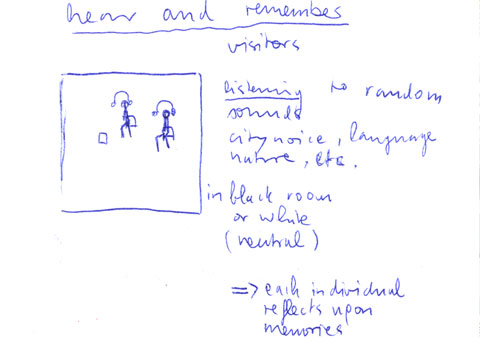 hear and remember
visitors
listening to random
sounds
city noice, language
nature, etc.
in black room
or white
(neutral)
=> each individual
reflects upon
memories